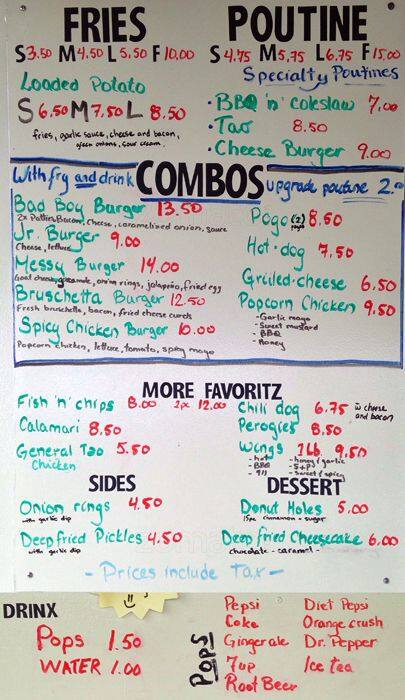 FRIES
S 3.50 M 4.50 L 5.50 F 10.00
Loaded Potato
S 6.50 M 7.50 L 8.50
fries, garlic sauce, cheese and bacon,
green onions, sour cream.
POUTINE
S 4.75 M 5.75 L 6.75 F 15.00
Specialty Poutines
• BBQ 'n' coleslaw 7.00
• Tao 8.50
• Cheese Burger 9.00
With fry and drink COMBOS upgrade poutine 2.00
Bad Boy Burger 13.50
2x Patties, Bacon, Cheese, caramelized onion, sauce
Jr. Burger 9.00
Cheese, lettuce
Messy Burger 14.00
Goat cheese, guacamole, onion rings, jalapeño, fried egg
Bruschetta Burger 12.50
Fresh bruschetta, bacon, fried cheese curds
Spicy Chicken Burger 10.00
Popcorn chicken, lettuce, tomato, spicy mayo
Pogo (2) 8.50
pogos
Hot-dog 7.50
Grilled-cheese 6.50
Popcorn Chicken 9.50
- Garlic mayo
- Sweet mustard
- BBQ
- Honey
MORE FAVORITZ
Fish 'n' chips 8.00 2px 12.00
Calamari 8.50
General Tao 5.50
Chicken
Chili dog 6.75 w cheese
and bacon
Perogies 8.50
Wings 1Lb. 9.50
- hot
- BBQ
- 911
- honey garlic
- S+P
- sweet spicy
SIDES
Onion rings 4.50
with garlic dip
Deep fried Pickles 4.50
with garlic dip
DESSERT
Donut Holes 5.00
15pc cinnamon - sugar
Deep fried Cheesecake 6.00
chocolate - caramel -
- Prices include Tax -
DRINX
Pops 1.50
WATER 1.00
POPS
Pepsi
Coke
Gingerale
7up
Root Beer
Diet Pepsi
Orange crush
Dr. Pepper
Ice tea